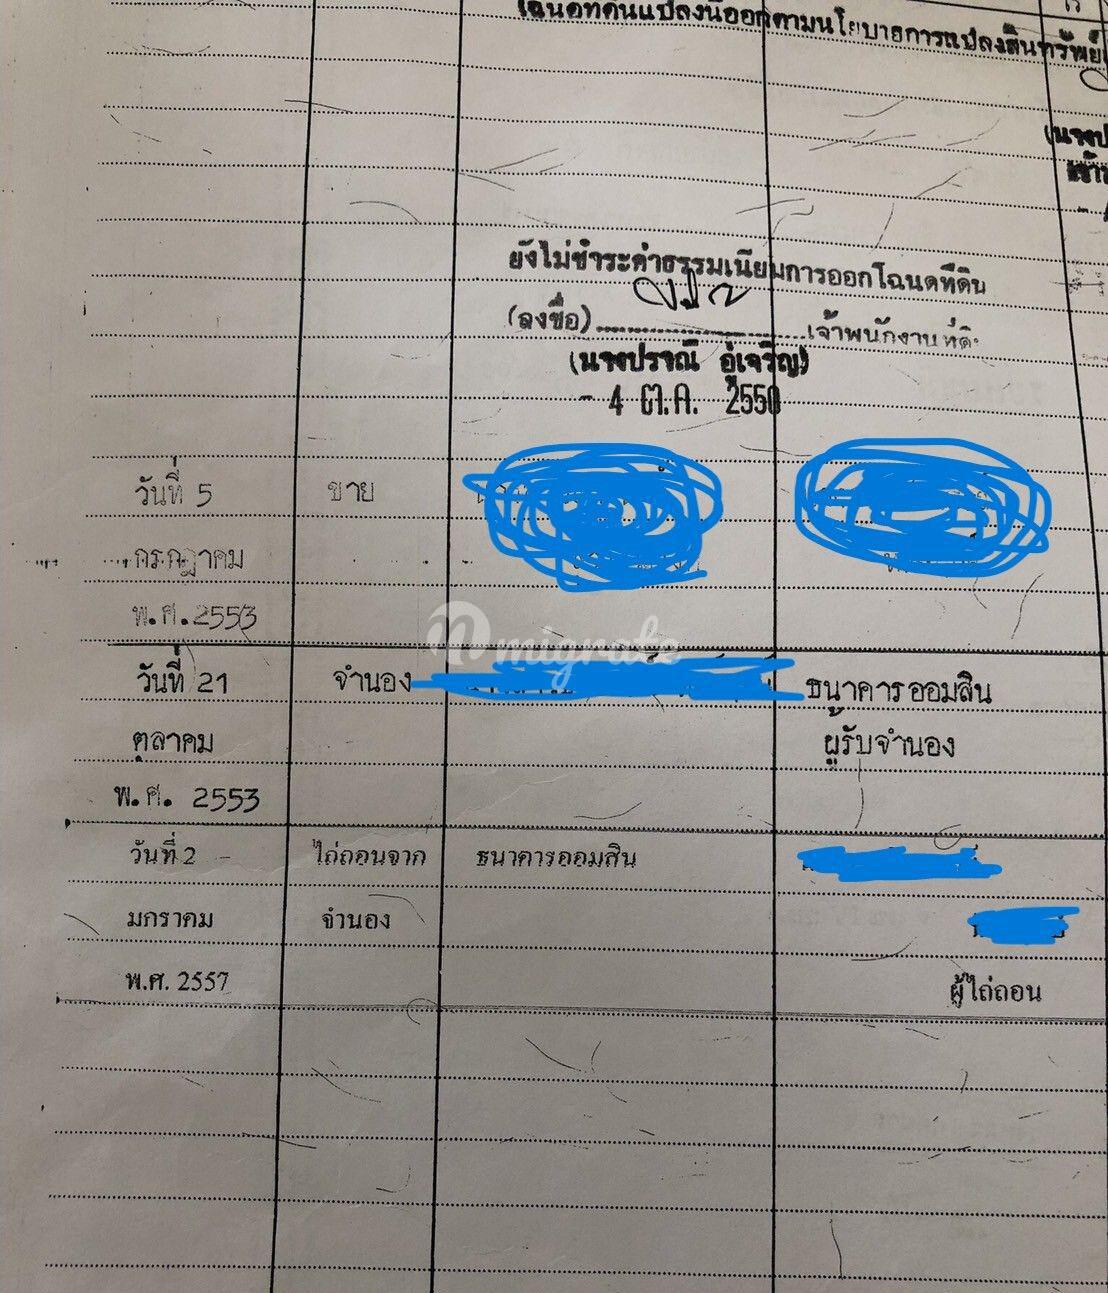 โฉนดที่ดินแปลงนี้ออกตามนโยบายการแปลงสินทรัพย์
(นางป
ยังไม่ชำระค่าธรรมเนียมการออกโฉนดที่ดิน
(ลงชื่อ) เจ้าพนักงานที่ดิ
(นางปราณี อู่เจริญ)
- 4 ต.ค. 2550
วันที่ 5 ขาย
กรกฎาคม
พ.ศ. 2553
migrate
วันที่ 21 จำนอง ธนาคารออมสิน
ตุลาคม ผู้รับจำนอง
พ.ศ. 2553
วันที่ 2 ไถ่ถอนจาก ธนาคารออมสิน
มกราคม จำนอง
พ.ศ. 2557 ผู้ไถ่ถอน